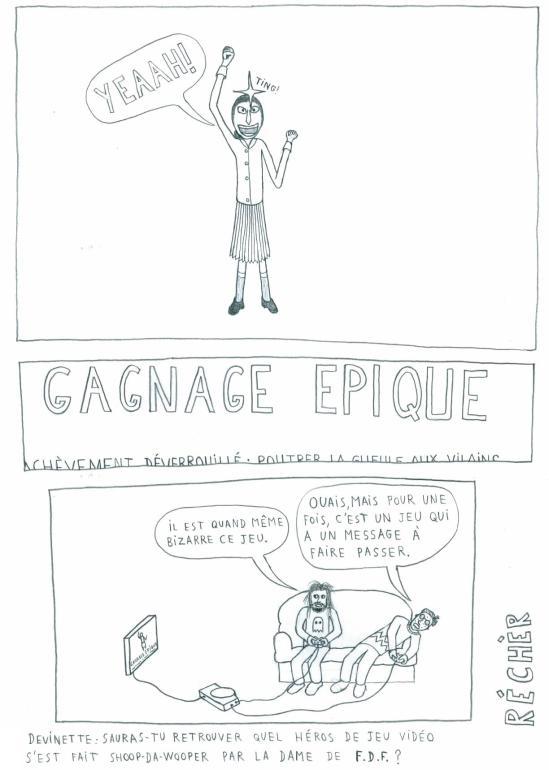 YEAAH!
TING!
GAGNAGE EPIQUE
ACHÈVEMENT DÉVERROUILLÉ : POUTRER LA GUEULE AUX VILAINS
IL EST QUAND MÊME
BIZARRE CE JEU.
OUAIS, MAIS POUR UNE
FOIS, C'EST UN JEU QUI
A UN MESSAGE À
FAIRE PASSER.
RÉCHÈR
DEVINETTE : SAURAS-TU RETROUVER QUEL HÉROS DE JEU VIDÉO
S'EST FAIT SHOOP-DA-WOOPER PAR LA DAME DE F.D.F. ?